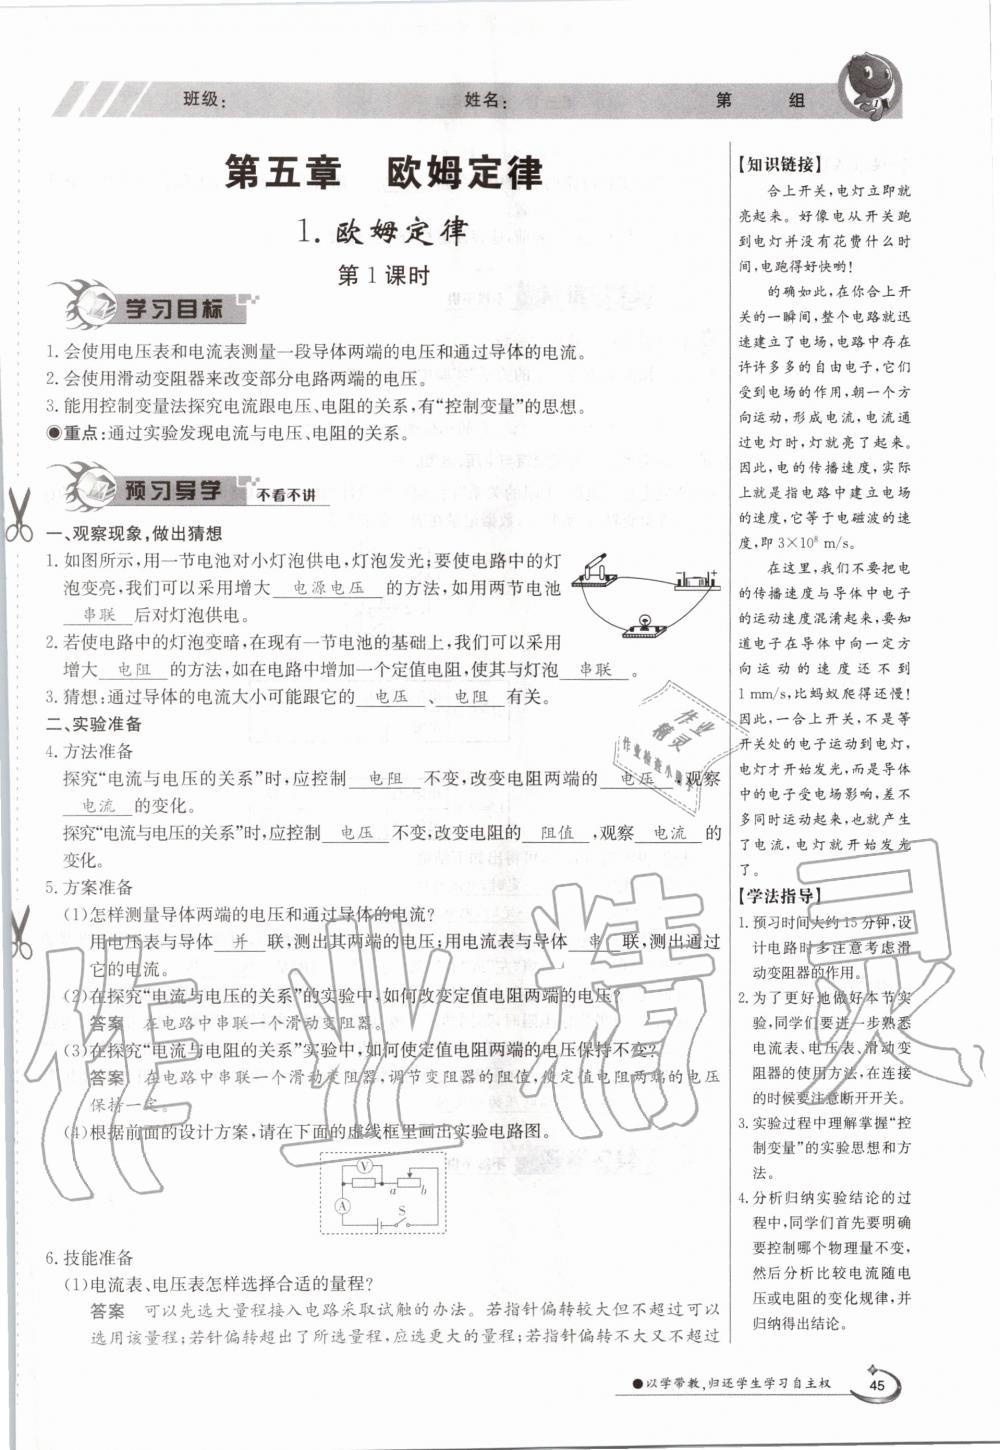 班级:
姓名:
第 组
第五章 欧姆定律
1.欧姆定律
第1课时
学习目标
1.会使用电压表和电流表测量一段导体两端的电压和通过导体的电流。
2.会使用滑动变阻器来改变部分电路两端的电压。
3.能用控制变量法探究电流跟电压、电阻的关系,有“控制变量”的思想。
●重点:通过实验发现电流与电压、电阻的关系。
预习导学 不看不讲
一、观察现象,做出猜想
1.如图所示,用一节电池对小灯泡供电,灯泡发光;要使电路中的灯
泡变亮,我们可以采用增大 电源电压 的方法,如用两节电池
串联 后对灯泡供电。
2.若使电路中的灯泡变暗,在现有一节电池的基础上,我们可以采用
增大 电阻 的方法,如在电路中增加一个定值电阻,使其与灯泡 串联 。
3.猜想:通过导体的电流大小可能跟它的 电压 、 电阻 有关。
二、实验准备
4.方法准备
探究“电流与电压的关系”时,应控制 电阻 不变,改变电阻两端的 电压 ,观察
电流 的变化。
探究“电流与电压的关系”时,应控制 电压 不变,改变电阻的 阻值 ,观察 电流 的
变化。
5.方案准备
(1)怎样测量导体两端的电压和通过导体的电流?
用电压表与导体 并 联,测出其两端的电压;用电流表与导体 串 联,测出通过
它的电流。
(2)在探究“电流与电压的关系”的实验中,如何改变定值电阻两端的电压?
答案 在电路中串联一个滑动变阻器。
(3)在探究“电流与电阻的关系”实验中,如何使定值电阻两端的电压保持不变?
答案 在电路中串联一个滑动变阻器,调节变阻器的阻值,使定值电阻两端的电压
保持一定。
(4)根据前面的设计方案,请在下面的虚线框里画出实验电路图。
V
a b
A
S
6.技能准备
(1)电流表、电压表怎样选择合适的量程?
答案 可以先选大量程接入电路采取试触的办法。若指针偏转较大但不超过可以
选用该量程;若指针偏转超出了所选量程,应选更大的量程;若指针偏转不大又不超过
【知识链接】
合上开关,电灯立即就
亮起来。好像电从开关跑
到电灯并没有花费什么时
间,电跑得好快哟!
的确如此,在你合上开
关的一瞬间,整个电路就迅
速建立了电场,电路中存在
许许多多的自由电子,它们
受到电场的作用,朝一个方
向运动,形成电流,电流通
过电灯时,灯就亮了起来。
因此,电的传播速度,实际
上就是指电路中建立电场
的速度,它等于电磁波的速
度,即 3×10⁸ m/s。
在这里,我们不要把电
的传播速度与导体中电子
的运动速度混淆起来,要知
道电子在导体中向一定方
向运动的速度还不到
1 mm/s,比蚂蚁爬得还慢!
因此,一合上开关,不是等
开关处的电子运动到电灯,
电灯才开始发光,而是导体
中的电子受电场影响,差不
多同时运动起来,也就产生
了电流,电灯就开始发光
了。
【学法指导】
1.预习时间大约15分钟,设
计电路时多注意考虑滑
动变阻器的作用。
2.为了更好地做好本节实
验,同学们要进一步熟悉
电流表、电压表、滑动变
阻器的使用方法,在连接
的时候要注意断开开关。
3.实验过程中理解掌握“控
制变量”的实验思想和方
法。
4.分析归纳实验结论的过
程中,同学们首先要明确
要控制哪个物理量不变,
然后分析比较电流随电
压或电阻的变化规律,并
归纳得出结论。
作业
精灵
作业检查小助手
作业精灵
●以学带教,归还学生学习自主权
45